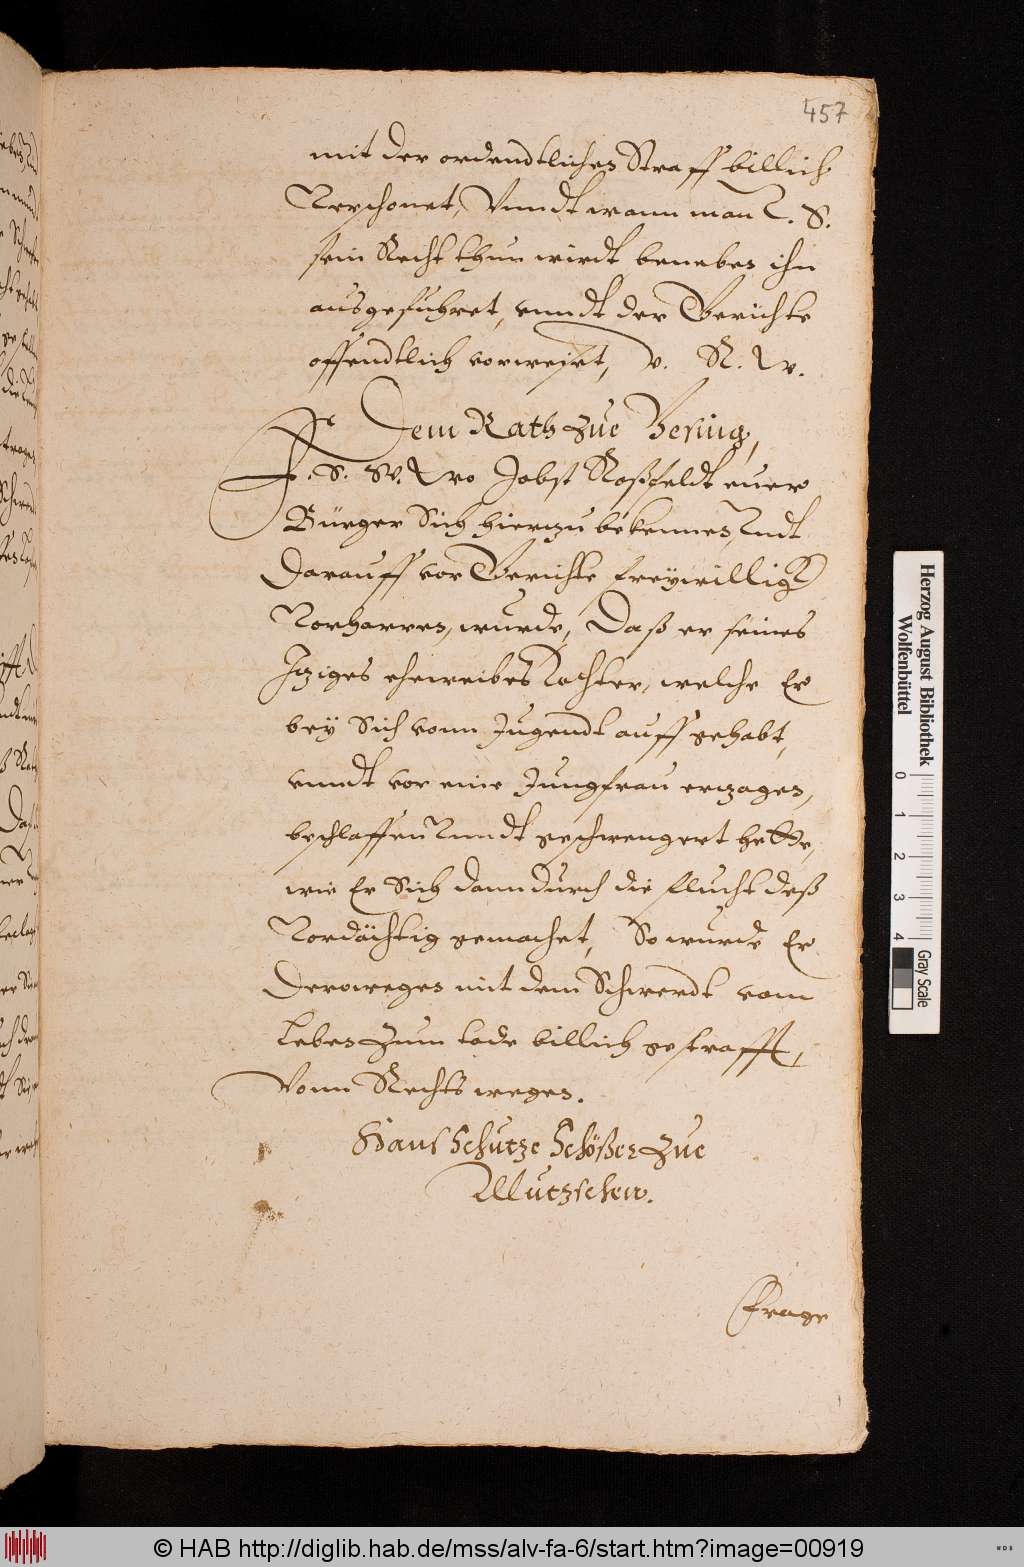 457
mit der ordendtlichen Straff billich
Verschonet, Vnndt wann man V. S.
sein Recht thun wirdt beneben ihn
ausgefuhret, vnndt der Gerichte
offendtlich vorweiset, v. R. w.
Dem Rath zue
P. S. Jobst Roßfeldt euer
Bürger Sich hierzu bekennen, Vndt
Darauff vor Gerichte freywillig
Vorharren, wurde, Daß er seines
Itziges eheweibes Tochter, welche Er
bey Sich vonn Jugendt auff gehabt,
vnndt vor eine Jungfrau erzogen,
beschlaffen Vnndt geschwengert hette,
wie Er Sich dann durch die flucht deß
Vordächtig gemachet, So wurde Er
Derowegen mit dem Schwerdt vom
Leben zum tode billich gestrafft,
Vonn Rechts wegen.
Hans Schutze Schößer zue
Mutzschen.
Frage
Herzog August Bibliothek
Wolfenbüttel
0 1 2 3 4
Gray Scale
© HAB http://diglib.hab.de/mss/alv-fa-6/start.htm?image=00919